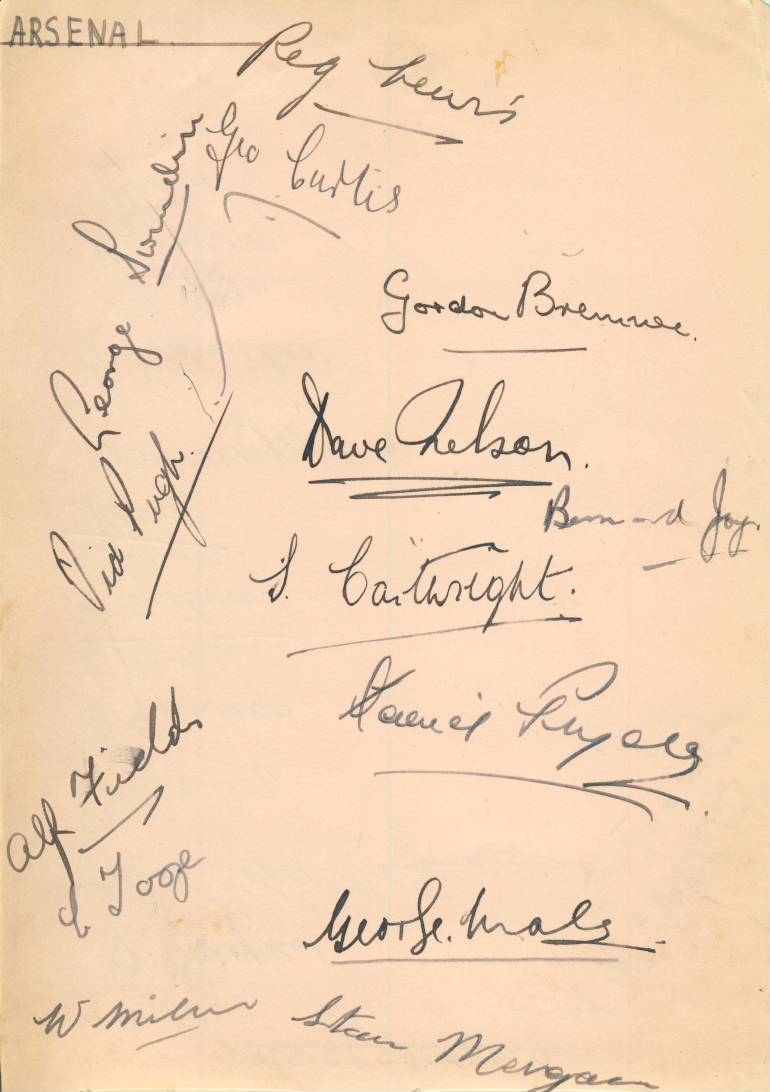 ARSENAL
Reg Lewis
Geo Curtis
George Swindin
Gordon Bremner.
Dave Nelson.
Pugh.
Bernard Joy.
S. Cartwright.
Alf Fields
George. Male.
W Milne
Stan Morgan